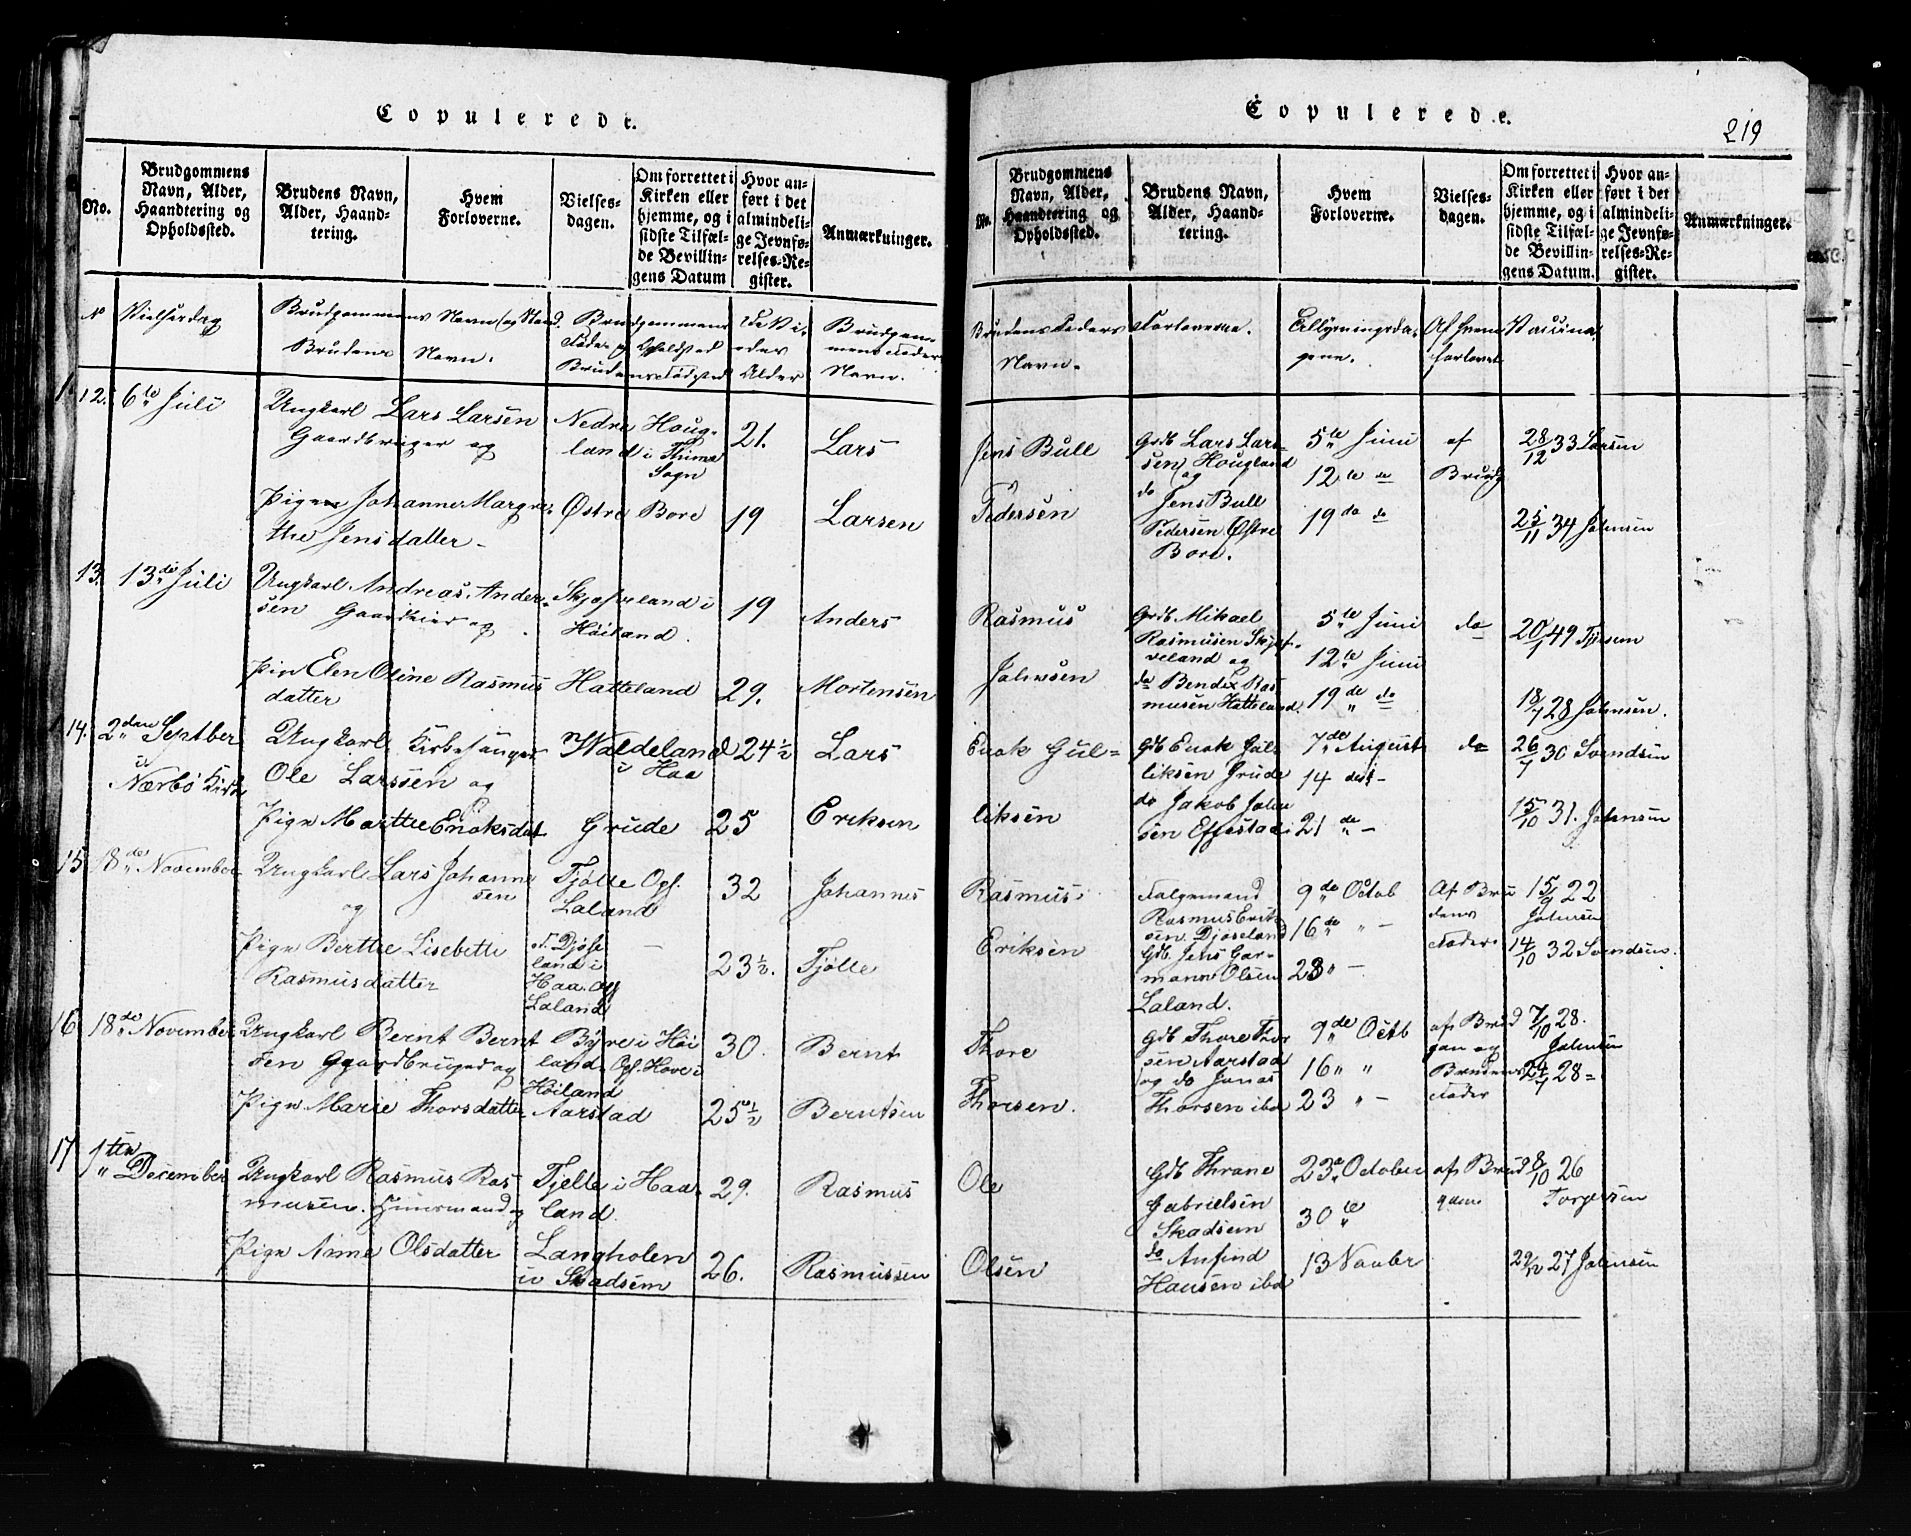 Copulerede.
No.
Brudgommens
Navn, Alder,
Haandtering og
Opholdssted.
Brudens Navn,
Alder, Haand-
tering.
Hvem
Forloverne.
Vielses-
dagen.
Om forrettet i
Kirken eller
hjemme, og i
sidste Tilfæl-
de Bevillin-
gens Datum
Hvor an-
ført i det
almindeli-
ge Jevnfø-
relses-Re-
gister.
Anmærkninger.
N Vielsesdag
Brudgommens Navn og Stand
Brudens Navn.
Brudgommens
Føde og Opholdsted
Brudens Fødsted
Alder
Brudgom-
mens Faders
Navn.
12. 6te Juli
Ungkarl Lars Larsen
Gaardbruger og
Nedre Houg-
land i Thime
Sogn
21.
Lars
Pigen Johanne Margre-
the Jensdatter
Østre Bore
19
Larsen
13. 13de Juli
Ungkarl Andreas Ander-
sen Gaardeier og
Skjæveland i
Höiland.
19
Anders
Pig Elen Oline Rasmus
datter
Hatteland
29.
Mortensen
14. 2den Septber
i
Nærbö Kirke
Ungkarl Kirkesanger
Ole Larssen og
Waldeland
i Haa
24½
Lars
Pige Marthe Enoksdat
Grude
25
Eriksen
15 18de November
Ungkarl Lars Johanne
sen
og
Tjölte Opf.
Laland
32
Johannes
Pige Berthe Lisebette
Rasmusdatter
F. Djöse
land i
Haa. Opf
Laland
23½.
Tjölte
16 18de November
Ungkarl Bernt Bernt
sen Ggardbruger og
Byre i Höi
land Opf. Hove i
Höiland
30.
Bernt
Pige Marie Thorsdatter
Aarstad
25½
Berntsen
17 1ste
December
Ungkarl Rasmus Ras
musen. Huusmand og
Tjelte i Haa-
land.
29.
Rasmus
Pige Anne Olsdatter
Langholen
i Skadsem
26.
Rasmussen
Copulerede.
219
No.
Brudgommens
Navn, Alder,
Haandtering og
Opholdssted.
Brudens Navn,
Alder, Haand-
tering.
Hvem
Forloverne.
Vielses-
dagen.
Om forrettet i
Kirken eller
hjemme, og i
sidste Tilfæl-
de Bevillin-
gens Datum.
Hvor an-
ført i det
almindeli-
ge Jevnfø-
relses-Re-
gister.
Anmærkninger.
Brudens Faders
Navn.
Forloverne.
Tillysningsda-
gene.
Af hvem
forlovet
Vaccina.
Jens Bull
Grdb Lars Lar-
sen Hougland
og
5te Juni
12te do
af
Brudg
28/12 33 Larsen
Pedersen
do Jens Bull
Pedersen Østre
Bore.
19de do
25/11 34 Johnsen
Rasmus
Grdb Mikael
Rasmusen Skjæ-
veland og
5te Juni
12te Juni
do
20/1 49
Johnsen
do Bendix Ras
musen Hatteland.
19de do
18/7 28 Johnsen.
Enok Gul-
Gdb Enok Gul
liksen Grude
7de August
14 dest-
do
26/7 30 Svendsen
liksen
do Jakob John
sen
21de -
15/10 31. Johnsen
Rasmus
Rasmus Erik
sen Djöseland
9de Octob
16de " -
Af Bru
dens
Fader
15/9 22
Johnsen
Eriksen
Gdb. Jens Gar-
mann Olsen
Laland.
23 " -
14/10 32 Svendsen.
Thore
Gdb Thore Thor
sen Aarstad
og do Jonas
9de Octb
16 " "
af Brud
gom og
Brudens
Fader
7/10 28.
Johnsen
24/7 28 =
Thorsen.
Thorsen ibd
23 " -
Ole
Gdb Thrane
Gabrielsen
Skadsem
23de October
30te
af Brud
gom
8/10 26
Torgersen
Olsen
do Anfind
Hansen ibd
13 Novbr
27 Johnsen